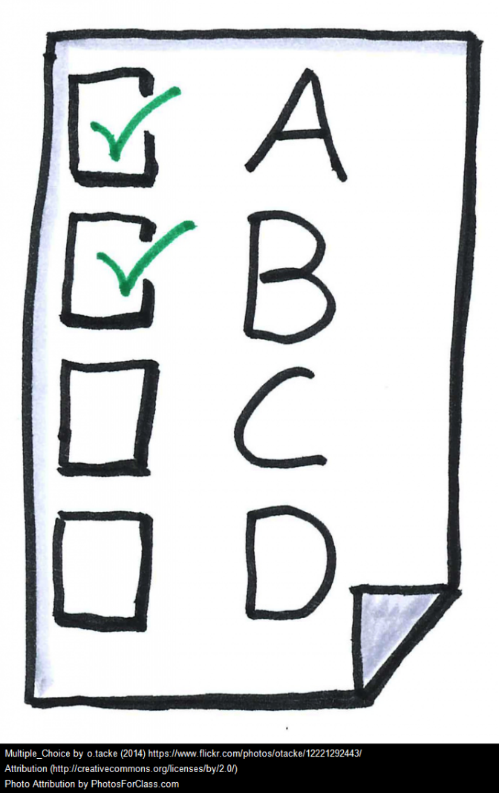 A
B
C
D
Multiple_Choice by o.tacke (2014) https://www.flickr.com/photos/otacke/12221292443/
Attribution (http://creativecommons.org/licenses/by/2.0/)
Photo Attribution by PhotosForClass.com